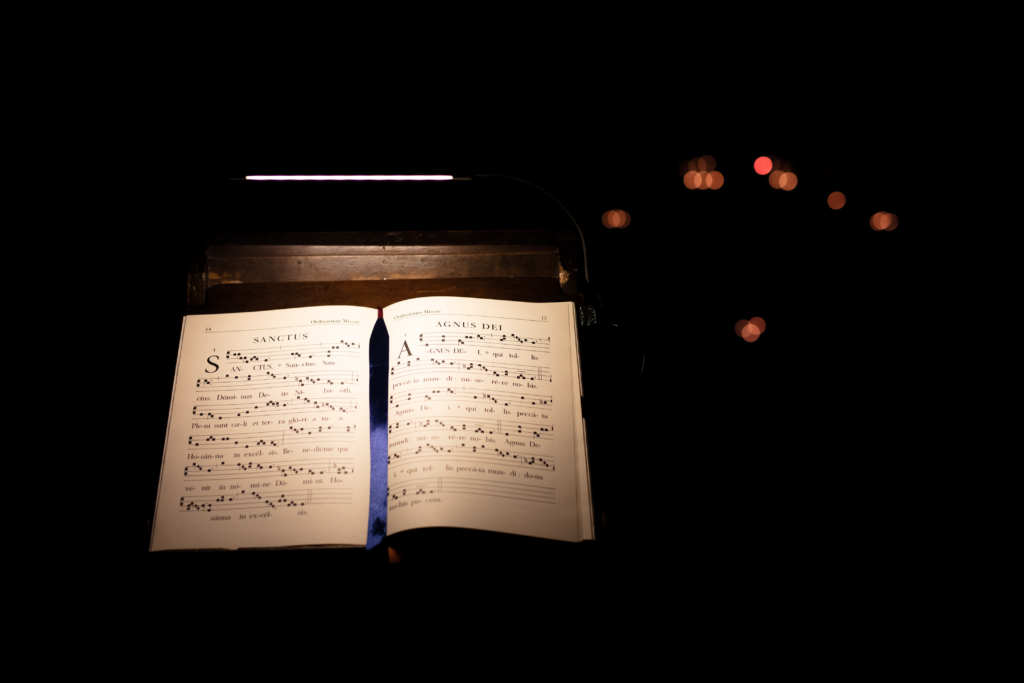 14
Ordinarium Missæ
SANCTUS
S
AN- CTUS, * San- ctus, San-
ctus Dómi- nus De- us Sá- ba- oth.
Ple-ni sunt cæ-li et ter- ra gló-ri- a tu- a.
Ho-sán-na in excél- sis. Be- ne-díctus qui
ve- nit in nó- mi-ne Dó- mi-ni. Ho-
sánna in ex-cél- sis.
Ordinarium Missæ
15
AGNUS DEI
A
GNUS DE- I, * qui tol- lis
peccá-ta mun- di : mi- se- ré-re no- bis.
Agnus De- i, * qui tol- lis peccá- ta
mundi : mi- se- ré-re no- bis. Agnus De-
i, * qui tol- lis peccá-ta mun- di : dona
no-bis pa- cem.